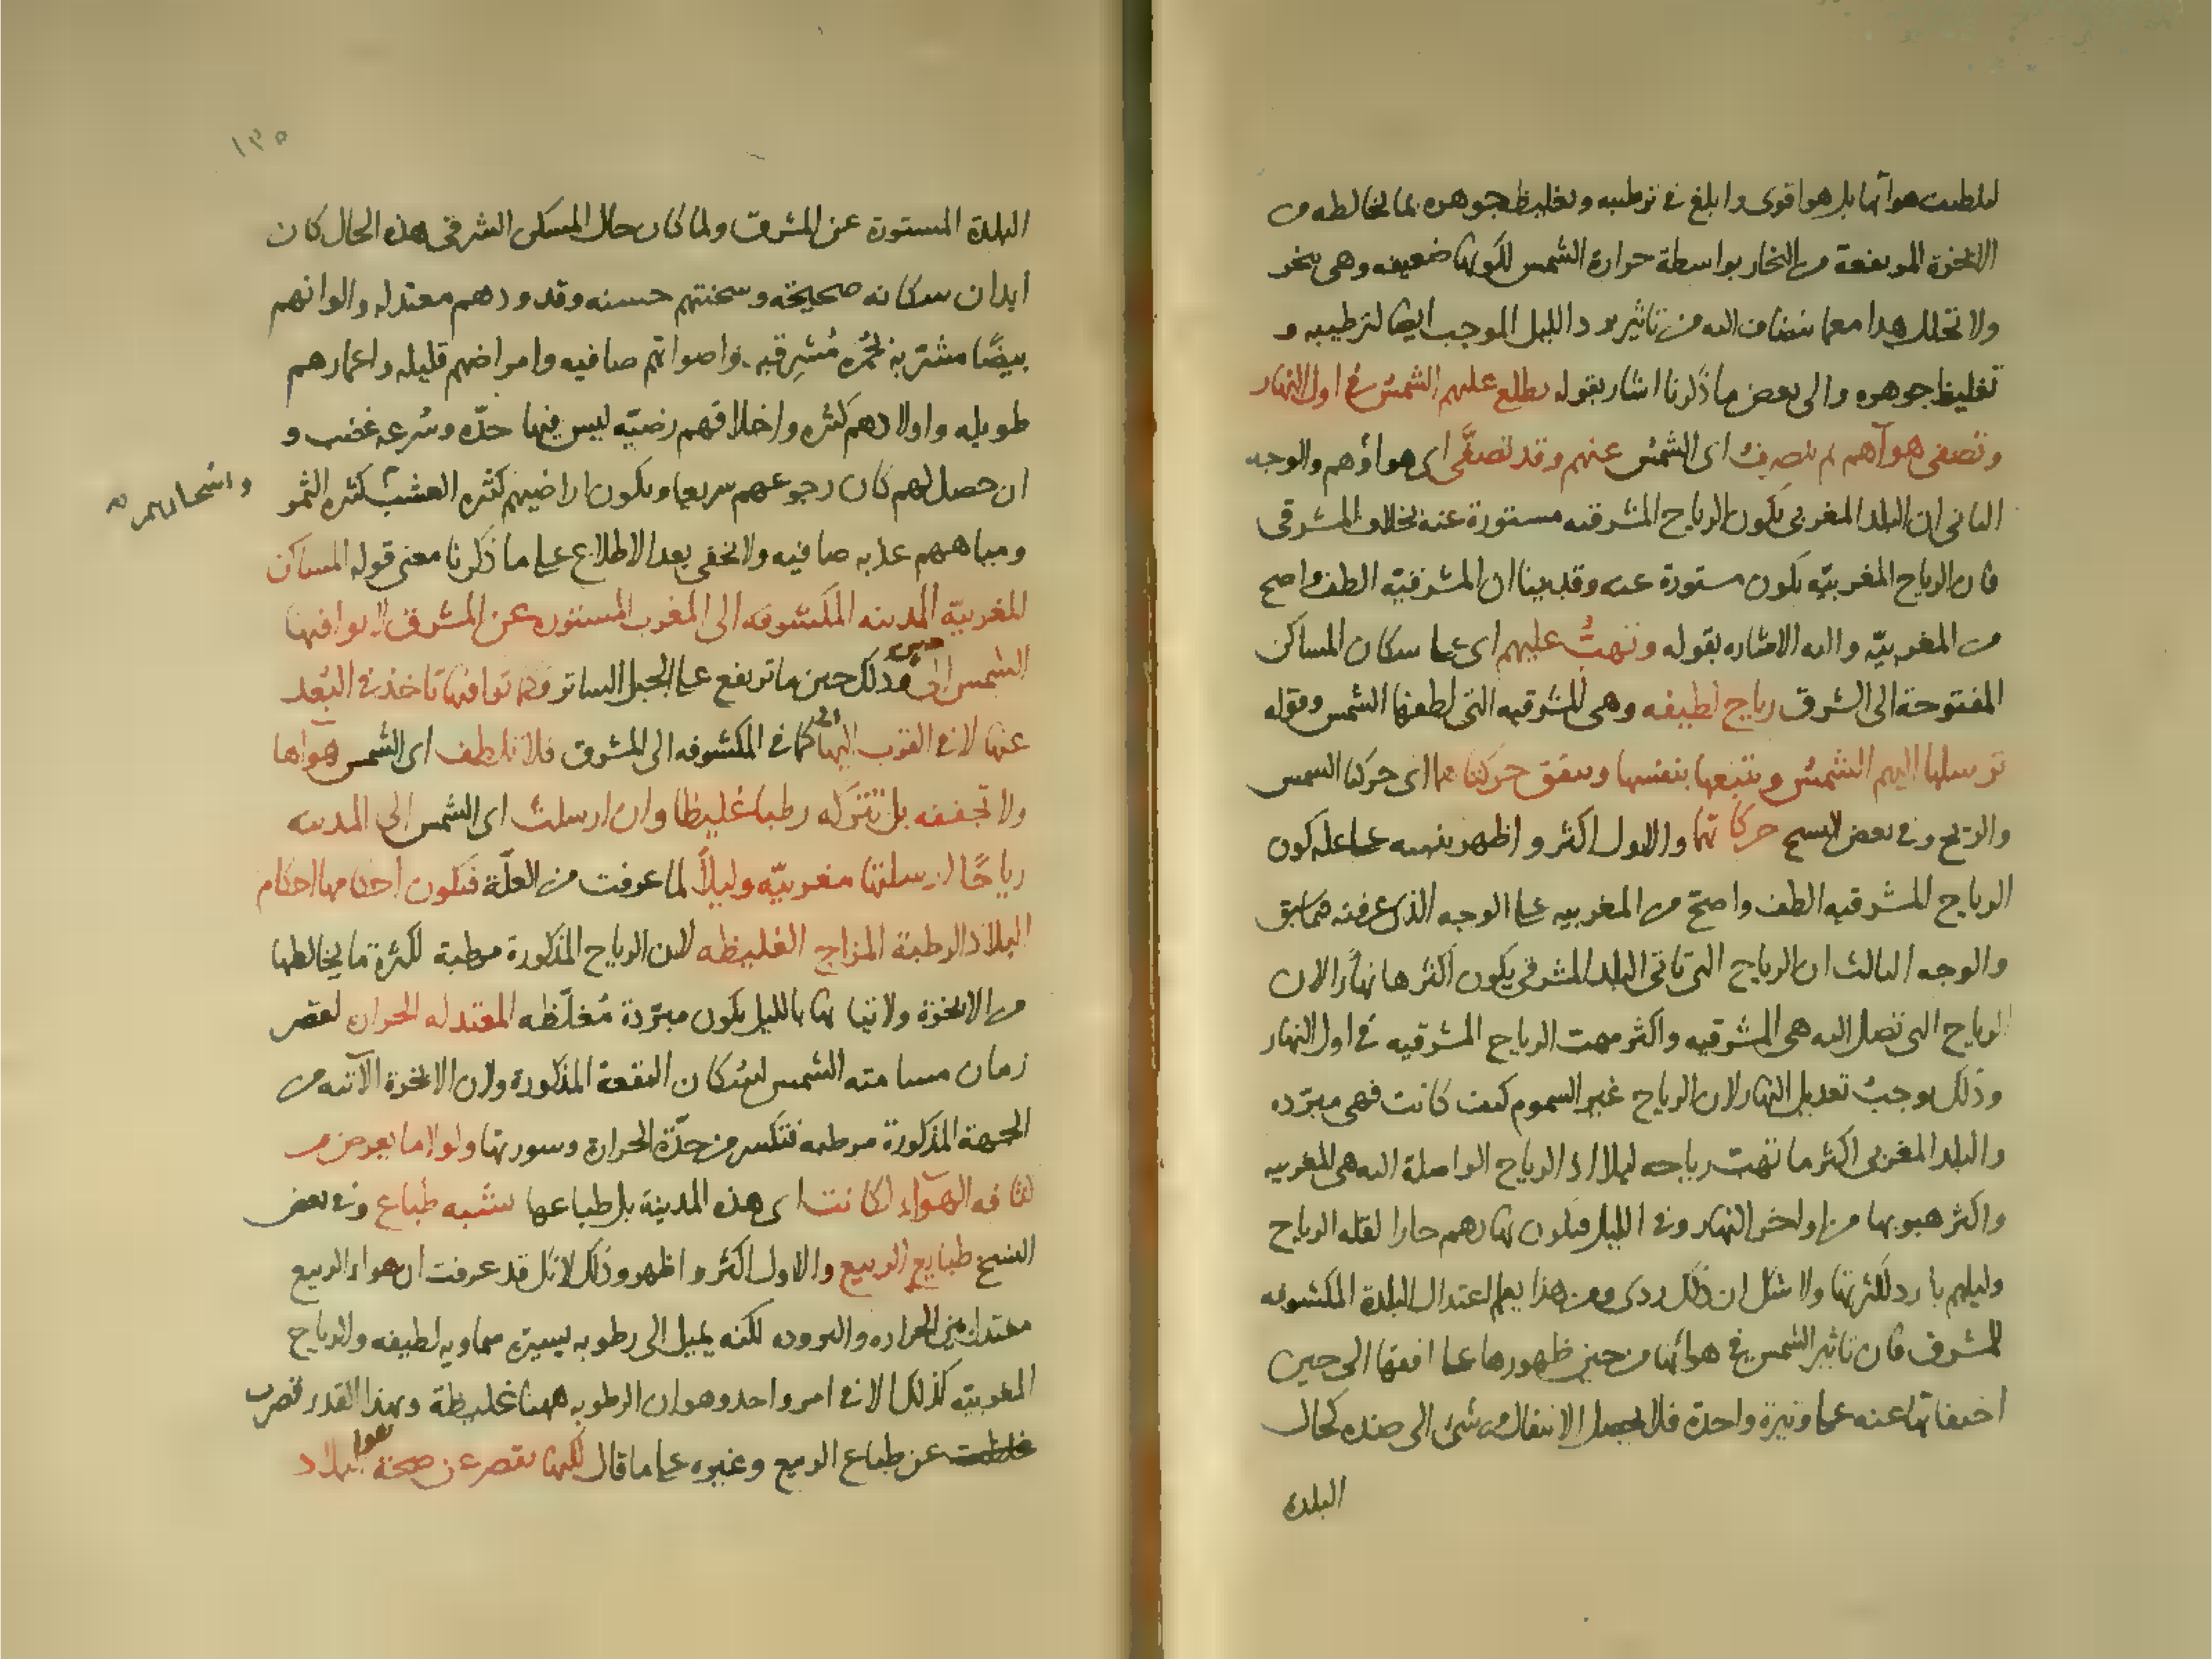 لتلطيف هوآئها بل هو اقوى وابلغ في ترطيبه وتغليظ جوهره بما يخالطه من
الابخرة المرتفعة من البخار بواسطة حرارة الشمس لكونها ضعيفه وهى تبخر
ولا تحلل هذا معما ينضاف اليه من تاثير برد الليل الموجب ايضا لترطيبه و
تغليظ جوهره والى بعض ما ذكرنا اشار بقوله تطلع عليهم الشمس في اول النهار
وتصفى هوآهم ثم تنصرف اى الشمس عنهم وقد تصفَّى اى هواؤهم والوجه
الثانى ان البلد المغربى تكون الرياح المشرقيه مستورة عنه بخلاف المشرقى
فان الرياح المغربيّه تكون مستورة عنه وقد بينا ان المشرقيّه الطف واصح
من المغربيّه واليه الاشاره بقوله وتهبُّ عليهم اى على سكان المساكن
المفتوحة الى الشرق رياح لطيفه وهى المشرقيه التى لطفها الشمس وقوله
ترسلها اليهم الشمس وتتبعها بنفسها وتتفق حركتاهما اى حركتا الشمس
والريح وفي بعض النسخ حركاتهما والاول اكثر واظهر تنبيه على علة كون
الرياح المشرقيه الطف واصحّ من المغربيه على الوجه الذى عرفته فيما سبق
والوجه الثالث ان الرياح التى تاتى البلد المشرقى يكون اكثرها نهارا لان
الرياح التى تصل اليه هى المشرقيه واكثر مهب الرياح المشرقيه في اول النهار
وذلك يوجب تعديل النهار لان الرياح غير السموم كيف كانت فهى مبرّده
والبلد المغربى اكثر ما تهب رياحه ليلا اذ الرياح الواصلة اليه هى المغربيه
واكثر هبوبها من اواخر النهار وفي الليل فيكون نهارهم حارا لقله الرياح
وليلهم بارد لكثرتها ولا شك ان ذلك ردى ومن هذا يعلم اعتدال البلدة المكشوفه
للمشرق فان تاثير الشمس في هوآئها من حين ظهورها على افقها الى حين
اختفائها عنه على وتيرة واحدة فلا يحصل الانتقال من شئ الى ضده كحال
البلدة
١٣٥
البلدة المستورة عن المشرق ولما كان حال المسكن الشرقى هذه الحال كان
ابدان سكانه صحيحة وسحنتهم حسنه وقدودهم معتدله والوانهم
بيضًا مشتربة بحُمره مُشرِقه واصواتهم صافيه وامراضهم قليله واعمارهم
طويله واولادهم كثره واخلاقهم رضيّه ليس فيها حدّه وسُرعة غضب و
ان حصل لهم كان رجوعهم سريعا ويكون اراضيهم كثره العشب كثره الثمر
واشجارهم
ومياههم عذبه صافيه ولا يخفى بعد الاطلاع على ما ذكرنا معنى قوله المساكن
المغربيّه المدينه المكشوفه الى المغرب المستوره عن المشرق لا يوافيها
الشمس الى حين وذلك حين ما ترتفع على الجبل الساتر وكما توافيها تاخذ في البُعد
عنها لا في القرب اليها كما في المكشوفه الى المشرق فلا تلطف اى الشمس هوآها
ولا تجففه بل تتركه رطبا غليظا وان ارسلت اى الشمس الى المدينه
رياحًا ارسلتها مغربيّه وليلاً لما عرفت من العلّة فيكون احكامها احكام
البلاد الرطبة المزاج الغليظه لان الرياح المذكورة مرطبة لكثرة ما يخالطها
من الابخرة ولاتيانها بالليل يكون مبرّدة مُغلّظه المعتدله الحراره لقصر
زمان مسامته الشمس لسُكان البقعة المذكورة ولان الابخرة الآتيه من
الجهة المذكورة مرطبه فتكسر من حدّة الحرارة وسورتها ولولا ما يعرض من
كثافه الهوآء لكانت اى هذه المدينة بل طباعها تشبه طباع وفي بعض
النسخ طبايع الربيع والاول اكثر واظهر وذلك لانك قد عرفت ان هواء الربيع
معتدل بين الحراره والبروده لكنه يميل الى رطوبه يسيرة سماويه لطيفه والرياح
المغربيّه كذلك الا في امر واحد وهو ان الرطوبه ههنا غليظة وبهذا القدر تقصر
عن طباع الربيع وغيره على ما قال لكنها تقصر عن صحة هوا البلاد